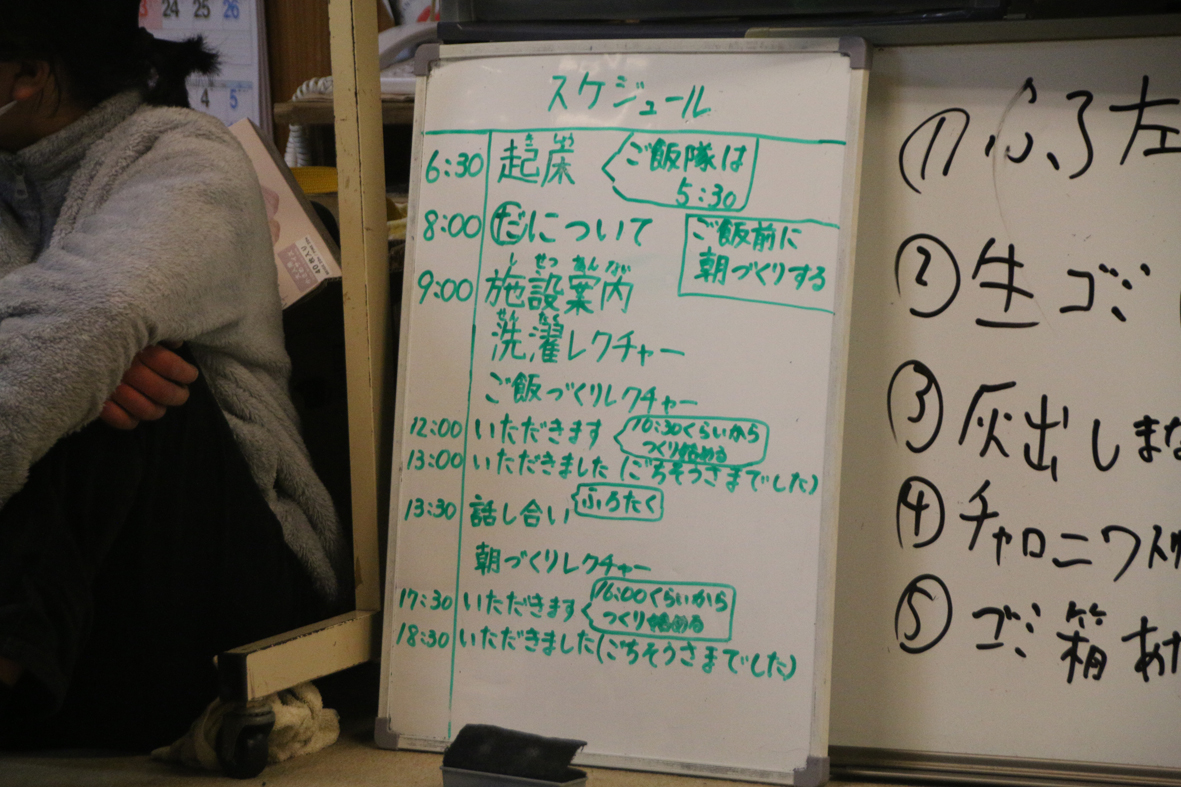 スケジュール
6:30 起床 ご飯隊は
5:30
8:00 だについて ご飯前に
朝づくりする
9:00 施設案内
しせつあんない
洗濯レクチャー
せんたく
ご飯づくりレクチャー
12:00 いただきます 10:30くらいから
つくり始める
13:00 いただきました (ごちそうさまでした)
13:30 話し合い ふろたく
朝づくりレクチャー
17:30 いただきます 16:00くらいから
つくり始める
18:30 いただきました (ごちそうさまでした)
① ふろ左
② 生ゴミ
③ 灰出しまな
④ チャロニワ
⑤ ゴミ箱あけ
24 25 26
4 5